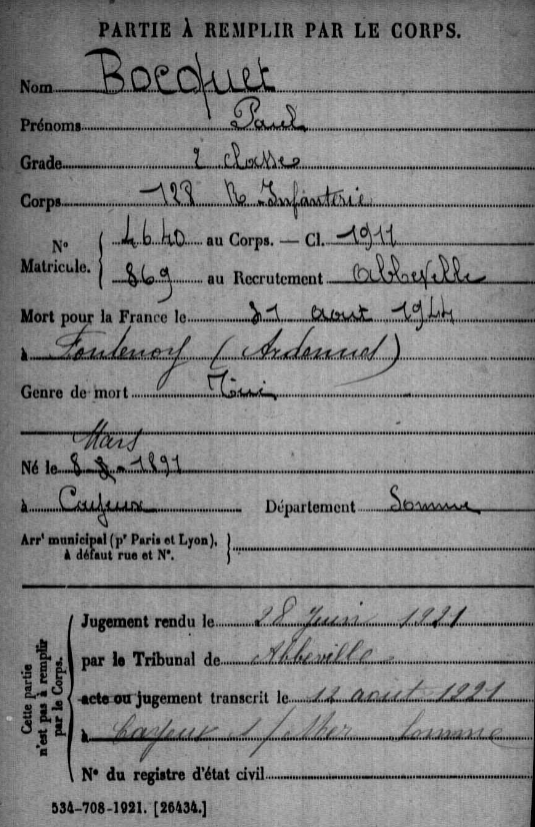 PARTIE À REMPLIR PAR LE CORPS.
Nom Bocquet
Prénoms Paul
Grade 2 classe
Corps 128 R Infanterie
N° Matricule. 4640 au Corps. — Cl. 1911
869 au Recrutement Abbeville
Mort pour la France le 31 aout 1914
à Fontenoy (Ardennes)
Genre de mort
Mars
Né le 8 1891
à Cayeux Département Somme
Arrᵗ municipal (pʳ Paris et Lyon),
à défaut rue et N°.
Cette partie n'est pas à remplir par le Corps.
Jugement rendu le 28 Juin 1921
par le Tribunal de Abbeville
acte ou jugement transcrit le 12 aout 1921
à Cayeux s/Mer Somme
N° du registre d'état civil
534-708-1921. [26434.]